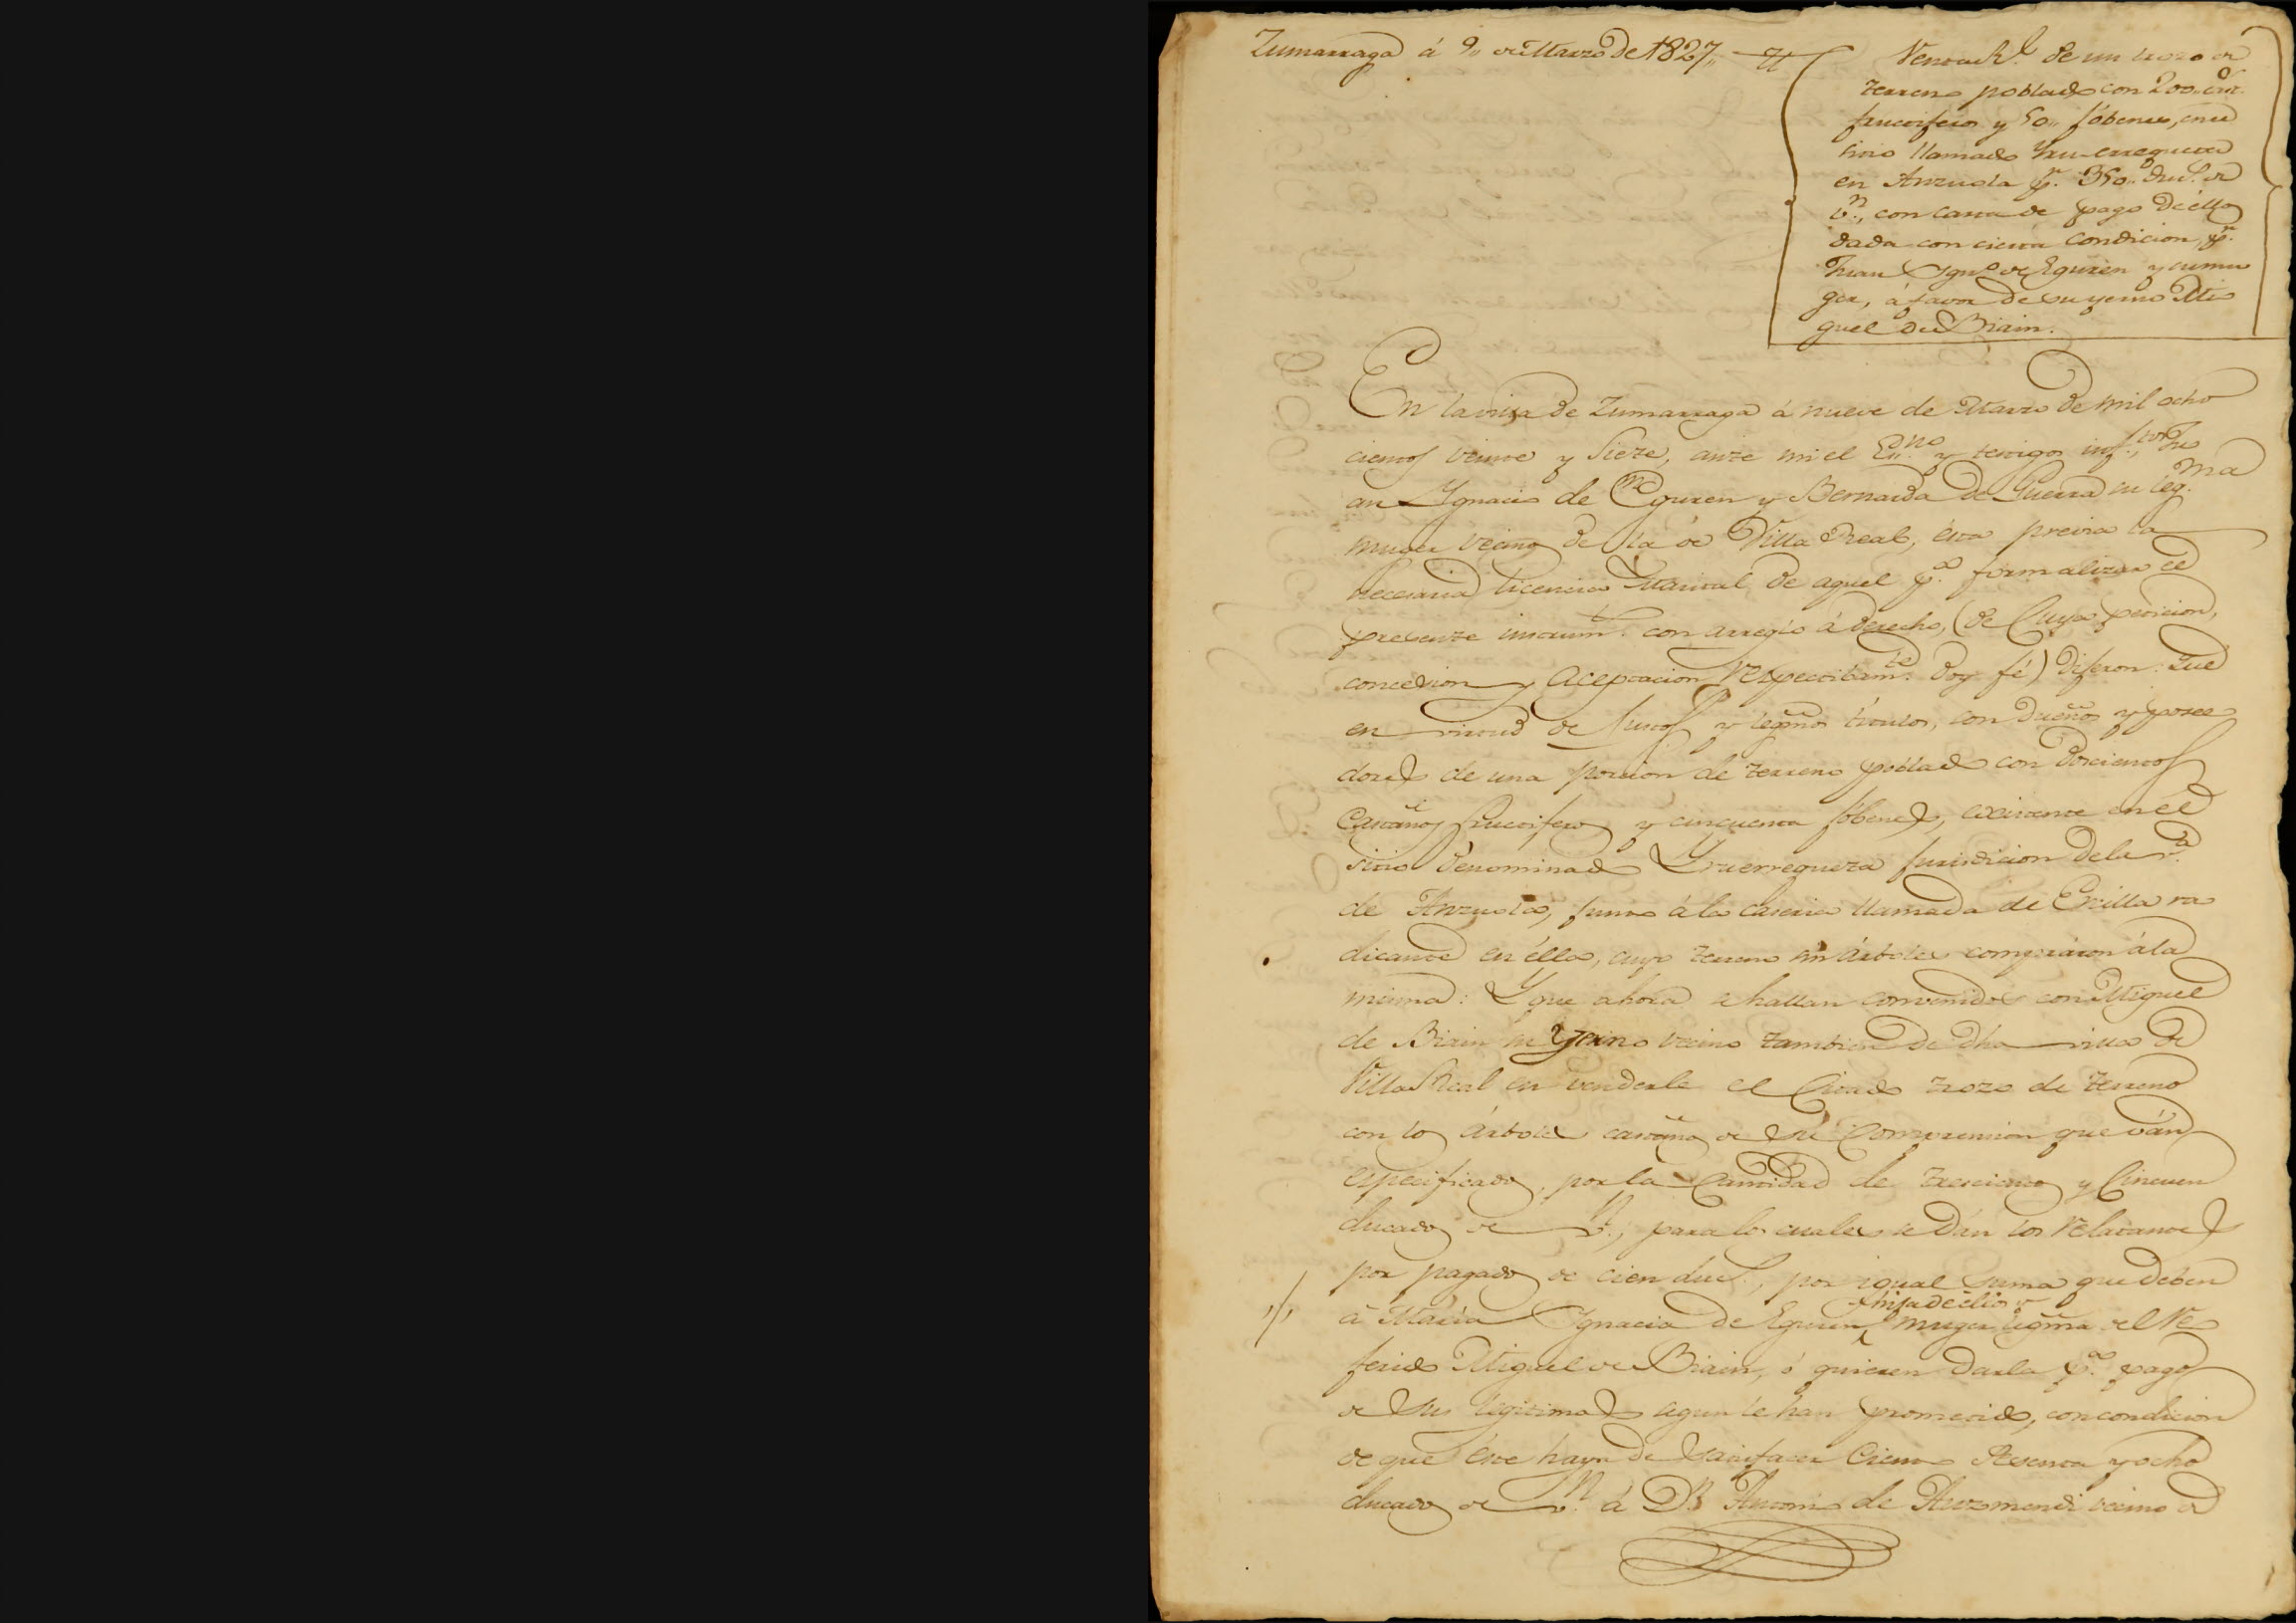 Zumarraga á 9,, de Marzo de 1827,,
Venta Rl. de un trozo de
terreno poblado con 200,, cast.
fructiferos y 50,, jóbenes, en el
sitio llamado
en Anzuola pr. 350,, duc.s de
vn., con carta de pago de éllos
dada con cierta condicion, pr.
Juan Ygno. de Eguren y su mu
ger, á favor de su yerno Mi
guel de Biain.
En la villa de Zumarraga á nueve de Marzo de mil ocho
cientos veinte y siete, ante mi el Esno. y testigos infrtos. Ju
an Ygnacio de Eguren y Bernarda de Guerra su legma.
muger vecinos de la de Villa Real, ésta previa la
necesaria licencia Marital de aquel pa. formalizar el
presente instrumto. con arreglo á derecho, (de cuya peticion,
concesion y aceptacion respectibamte. doy fé) dijeron: Que
en virtud de justos y legmos. titulos, son dueños y posee
dores de una porcion de terreno poblado con doscientos
Castaños fructiferos y cincuenta jóbenes, existente en el
sitio denominado Yruerregueta jurisdicion de la va.
de Anzuola, junto á la caseria llamada de Ercilla ra
dicante en élla, cuyo terreno sin árboles compraron á la
misma: Y que ahora se hallan convenidos con Miguel
de Biain su Yerno vecino tambien de dha villa de
Villa Real en venderle el citado trozo de terreno
con los árboles castaños de su comprension que ván
especificados, por la cantidad de trescientos y cincuen
ducados de vn., para los cuales se dán los relatantes
por pagados de cien duc.s, por igual suma que deben
á María Ygnacia de Eguren hija de éllos y muger legma. del re
ferido Miguel de Biain, ó quieren darla pa. pago
de sus legitimas segun le han prometido, con condicion
de que éste haya de satisfacer ciento sesenta y ocho
ducados de vn. á Dn. Antonio de Aizmendi vecino de